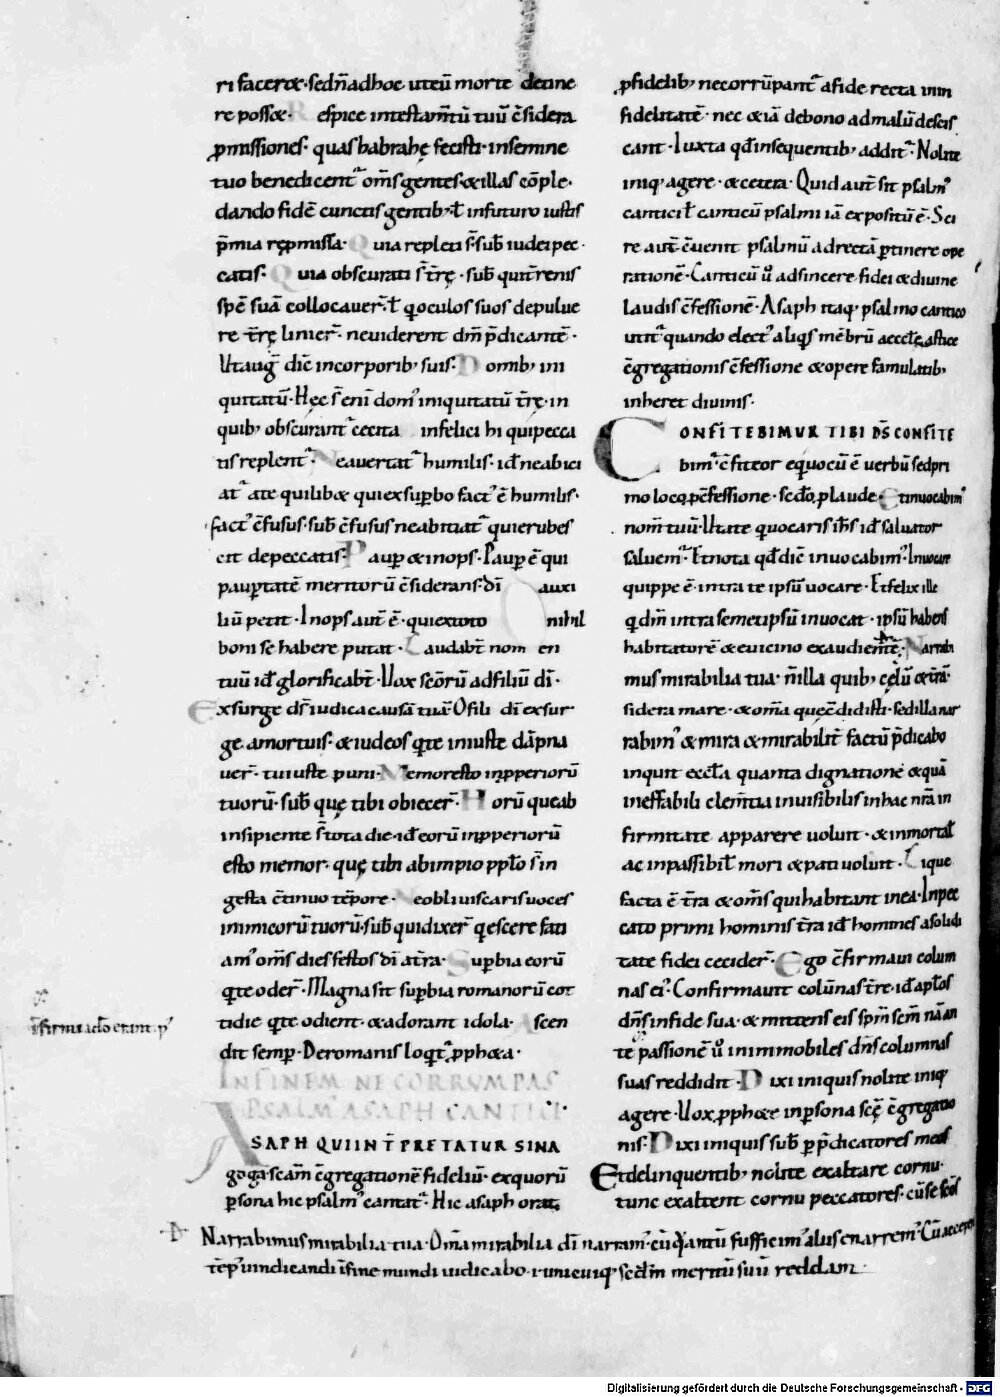 ri faceret· sed n̄ ad hoc ut eū morte detine
re posset· Respice in testam̄tū tuū c̄sidera
ꝓmissiones· quas habrahę fecisti· in semine
tuo benedicentᷣ om̄s gentes· & illas cōple·
dando fidē cunctis gentibꝫ· ł in futuro iustis
p̄mia rep̄missa· Quia repleti s̄· sub̄ iudei pec·
catis· Quia obscurati s̄ t̄rę· sub̄ qui t̄renis
spē suā collocaver̄· ł q̄ oculos suos depulve
re t̄rę linier̄· ne viderent dn̄m p̄dicantē·
Ut auḡ dic̄ in corporibꝫ suis· Domibꝫ ini
quitatū· Hęc s̄ eni domꝰ iniquitatū t̄rę· in
quibꝫ obscurantᷣ cęcita infelici hi qui pecca
tis replentᷣ· Ne avertatᷣ humilis· id ne abici
atᷣ a te quilib& qui ex supbo factꝰ ē humilis·
factꝰ c̄fusus· sub̄ c̄fusus ne abiciatᷣ qui erubes
cit de peccatis· Paup & inops· Paup ē qui
paup̄tatē meritorū c̄siderans· dī auxi
liū petit· Inops aut̄ ē· qui ex toto nihil
boni se habere putat· Laudab̄t nom en
tuū id glorificab̄t· Vox scōrū ad filiū dī·
Exsurge ds̄ iudica causā tuā O fili dī exsur
ge a mortuis· & iudeos qui te iniuste dāpna
ver̄· tu iuste puni· Memor esto inpperiorū
tuorū· sub̄ quę tibi obiecer̄· Horū que ab
insipiente s̄ tota die· id eorū inpperiorū
esto memor· quę tibi ab impio pplo s̄ in
gesta c̄tinuo tēpore· Ne obliviscaris voces
inimicorū tuorū· sub̄ qui dixer̄ q̄escere faci
amꝰ om̄s dies festos dī a t̄ra· Supbia eorū
qui te oder̄· Magna sit supbia romanorū cot
tidie qui te odient· & adorant idola· Ascen
dit semp· De romanis loqtᷣ ꝓph&a·
IN FINEM NE CORRVMPAS
PSALMꝰ ASAPH CANTICI
ASAPH QUI INT̄PRETATUR SINA
goga· scām c̄gregationē fideliū· ex quorū
psona hic psalmꝰ cantatᷣ· Hic asaph orat,
ꝓ fidelibꝫ ne corrūpantᷣ a fide recta in in
fidelitatē· nec & iā de bono ad malū descis
cant· Iuxta qd̄ in sequentibꝫ additᷣ· Nolite
iniq; agere· & cetera· Quid aut̄ sit psalmꝰ
cantici ł canticū psalmi iā expositū ē· Sci
re aut̄ c̄venit psalmū ad rectā ptinere ope
rationē· Canticū v̊ ad sincere fidei & divine
laudis c̄fessionē· Asaph itaq; psalmo cantico
utitᷣ quando electꝰ aliqs mēbrū aecclę, astice
c̄gregationis c̄fessione & opere famulatibꝫ
inheret divinis·
CONFITEBIMVR TIBI DS̄ CONFITE
bimꝰ· c̄fiteor equocū ē verbū sed pri
mo loco p c̄fessione· scdo, p laude· Et invocabimꝰ
nom̄ tuū· Ut a te q vocaris ih̄s id salvator
salvemᷣ· Et nota qd̄ dic̄ invocabimꝰ· Invocare
quippe ē· intra te ipsū vocare· Et felix ille
q dm̄ intra semetipsū invocat· ipsū habens
habitatorē & e vicino exaudientē· Narrabi
mus mirabilia tua· n̄ illa quibꝫ cęlū & t̄rā·
sidera mare· & om̄a que c̄didisti· sed illa nar
rabimꝰ & mira & mirabilit̄ factū p̄dicabo
inquit eccl̄a quanta dignatione & quā
ineffabili clem̄tia invisibilis in hac nr̄a in
firmitate apparere voluit· & inmortal̄
ac inpassibil̄ mori & pati voluit· Lique
facta ē t̄ra & om̄s qui habitant in ea· In pec
cato primi hominis t̄ra id homines a solidi
tate fidei cecider̄· Ego c̄firmavi colum
nas eiꝰ· Confirmavit colūnas t̄re· id apłos
dn̄s in fide sua· & mittens eis spm̄ scm̄ nā an
te passionē v̊ inimmobiles dn̄s columnas
suas reddidit· Dixi iniquis nolite iniq;
agere· Vox ꝓph&e in psona scę c̄gregatio
nis· Dixi iniquis sub̄ p p̄dicatores meos
Et delinquentibꝫ nolite exaltare cornu·
tunc exaltent cornu peccatores· cū se scōs
Narrabimus mirabilia tua· Om̄a mirabilia dī narramꝰ· cū q̄antū sufficimꝰ aliis enarremꝰ· Cū accepo
tēpꝰ vindicandi ī fine mundi iudicabo· i unicuiq; scdm̄ meritū suū reddam
Digitalisierung gefördert durch die Deutsche Forschungsgemeinschaft · DFG